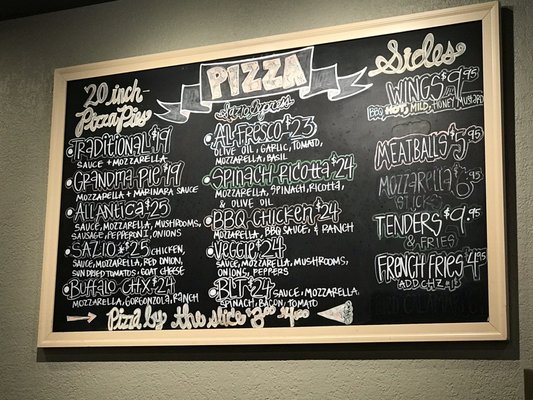 PIZZA
20 inch
Pizza Pies
TRADITIONAL $19
SAUCE + MOZZARELLA
GRANDMA PIE $19
MOZZARELLA + MARINARA SAUCE
ALLANTICA $25
SAUCE, MOZZARELLA, MUSHROOMS,
SAUSAGE, PEPPERONI, ONIONS
SAZIO $25 CHICKEN,
SAUCE, MOZZARELLA, RED ONION,
SUN DRIED TOMATOS, GOAT CHEESE
BUFFALO CHX $24
MOZZARELLA, GORGONZOLA, RANCH
AL FRESCO $23
OLIVE OIL, GARLIC, TOMATO,
MOZZARELLA, BASIL
SPINACH RICOTTA $24
MOZZARELLA, SPINACH, RICOTTA,
& OLIVE OIL
BBQ CHICKEN $24
MOZZARELLA, BBQ SAUCE, & RANCH
VEGGIE $24
SAUCE, MOZZARELLA, MUSHROOMS,
ONIONS, PEPPERS
BLT $24 SAUCE, MOZZARELLA,
SPINACH, BACON, TOMATO
Pizza by the slice
Sides
WINGS $9.95
BBQ, HOT, MILD, HONEY MUSTARD
MEATBALLS $5.95
MOZZARELLA
STICK
TENDERS $9.95
& FRIES
FRENCH FRIES $4.95
ADD CHZ